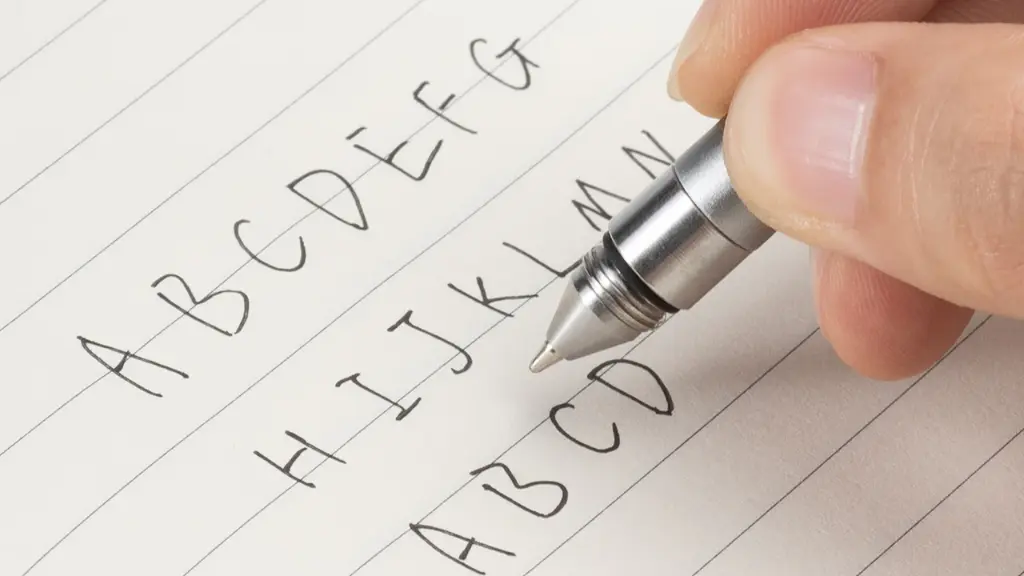 A B C D E F G
H I J K L M N
A B C D